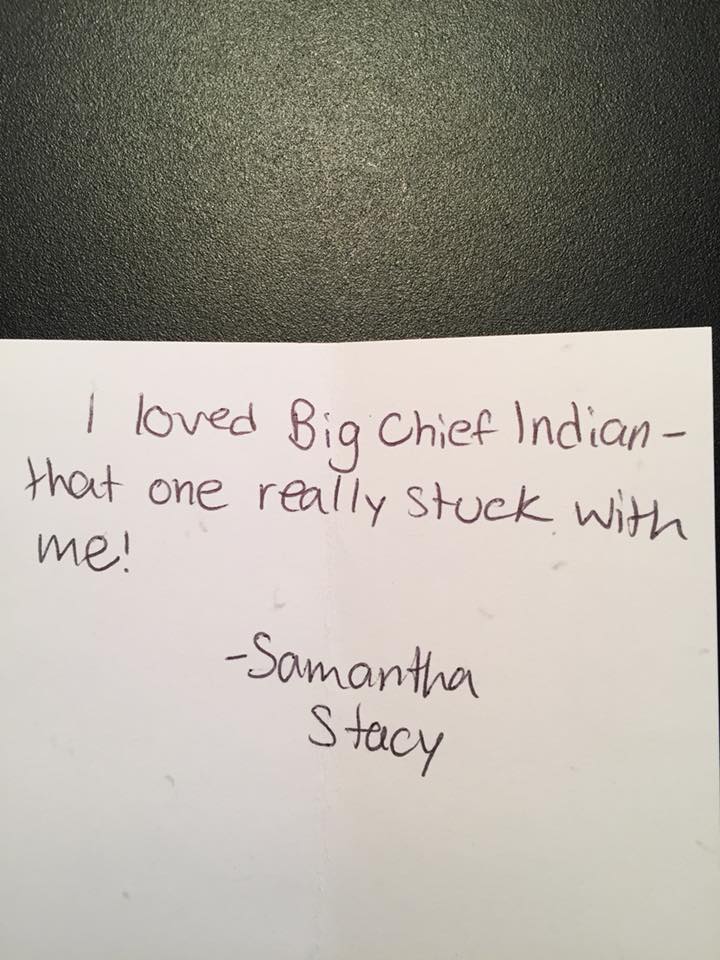 I loved Big Chief Indian -
that one really stuck with
me!
-Samantha
Stacy